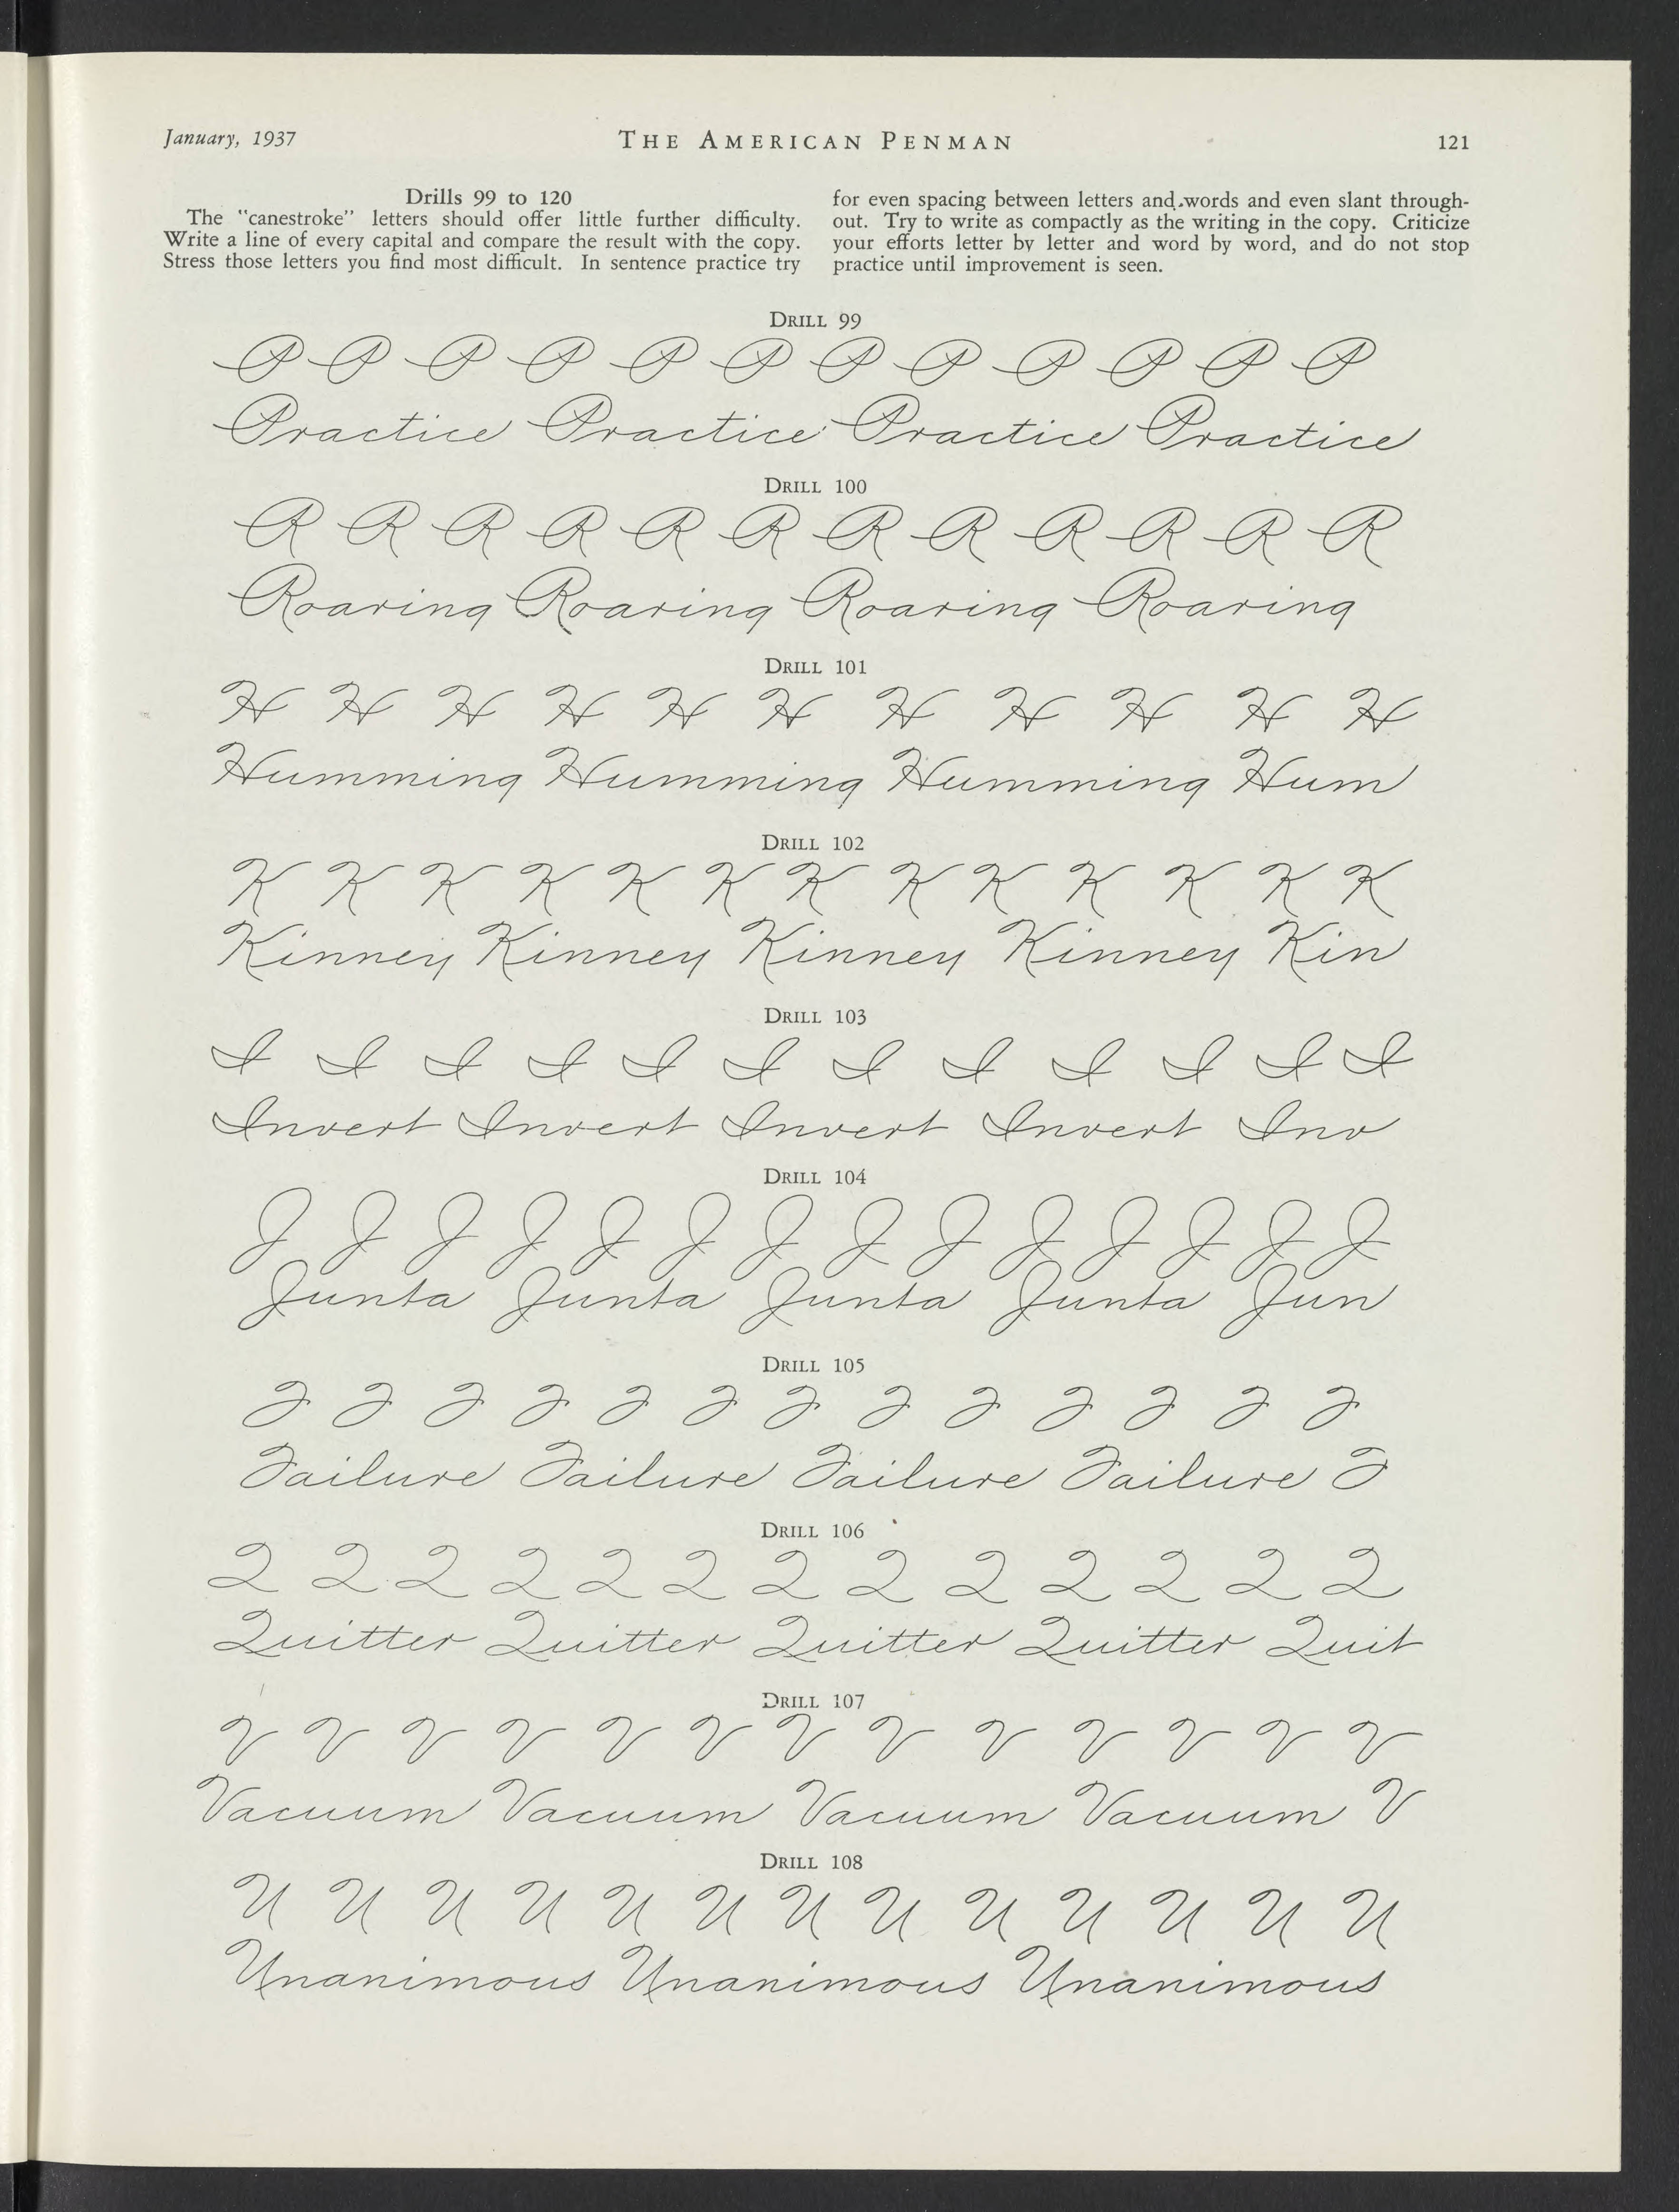 January, 1937 THE AMERICAN PENMAN 121
Drills 99 to 120
The "canestroke" letters should offer little further difficulty.
Write a line of every capital and compare the result with the copy.
Stress those letters you find most difficult. In sentence practice try
for even spacing between letters and words and even slant through-
out. Try to write as compactly as the writing in the copy. Criticize
your efforts letter by letter and word by word, and do not stop
practice until improvement is seen.
DRILL 99
P P P P P P P P P P P P
Practice Practice Practice Practice
DRILL 100
R R R R R R R R R R R R
Roaring Roaring Roaring Roaring
DRILL 101
H H H H H H H H H H H
Humming Humming Humming Hum
DRILL 102
K K K K K K K K K K K K K
Kinney Kinney Kinney Kinney Kin
DRILL 103
I I I I I I I I I I I I
Invert Invert Invert Invert Inv
DRILL 104
J J J J J J J J J J J J J J
Junta Junta Junta Junta Jun
DRILL 105
F F F F F F F F F F F F F
Failure Failure Failure Failure F
DRILL 106
Q Q Q Q Q Q Q Q Q Q Q Q Q
Quitter Quitter Quitter Quitter Quit
DRILL 107
V V V V V V V V V V V V V
Vacuum Vacuum Vacuum Vacuum V
DRILL 108
U U U U U U U U U U U U U
Unanimous Unanimous Unanimous